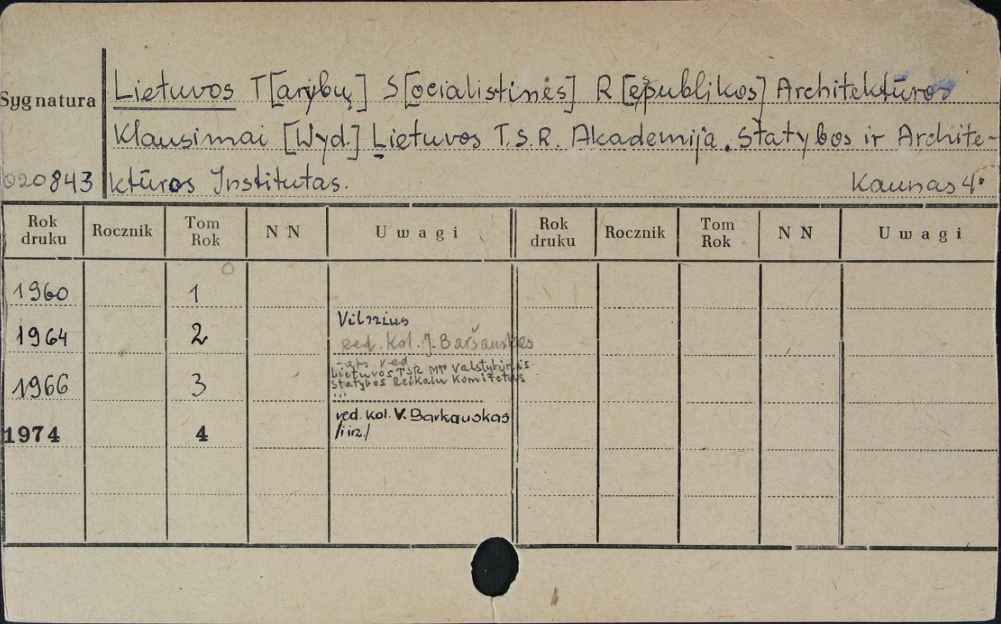 Sygnatura
020843
Lietuvos T[arybų] S[ocialistinės] R[epublikos] Architektūros
Klausimai [Wyd.] Lietuvos T.S.R. Akademija. Statybos ir Archite-
ktūros Institutas. Kaunas 4°
Rok druku Rocznik Tom Rok N N Uwagi Rok druku Rocznik Tom Rok N N Uwagi
1960 1
1964 2 Vilnius
red. kol. J. Baršauskas
red
1966 3 Lietuvos TSR MT Valstybinis
Statybos Reikalu Komitetas
1974 4 red. kol. V. Barkauskas
/i in/